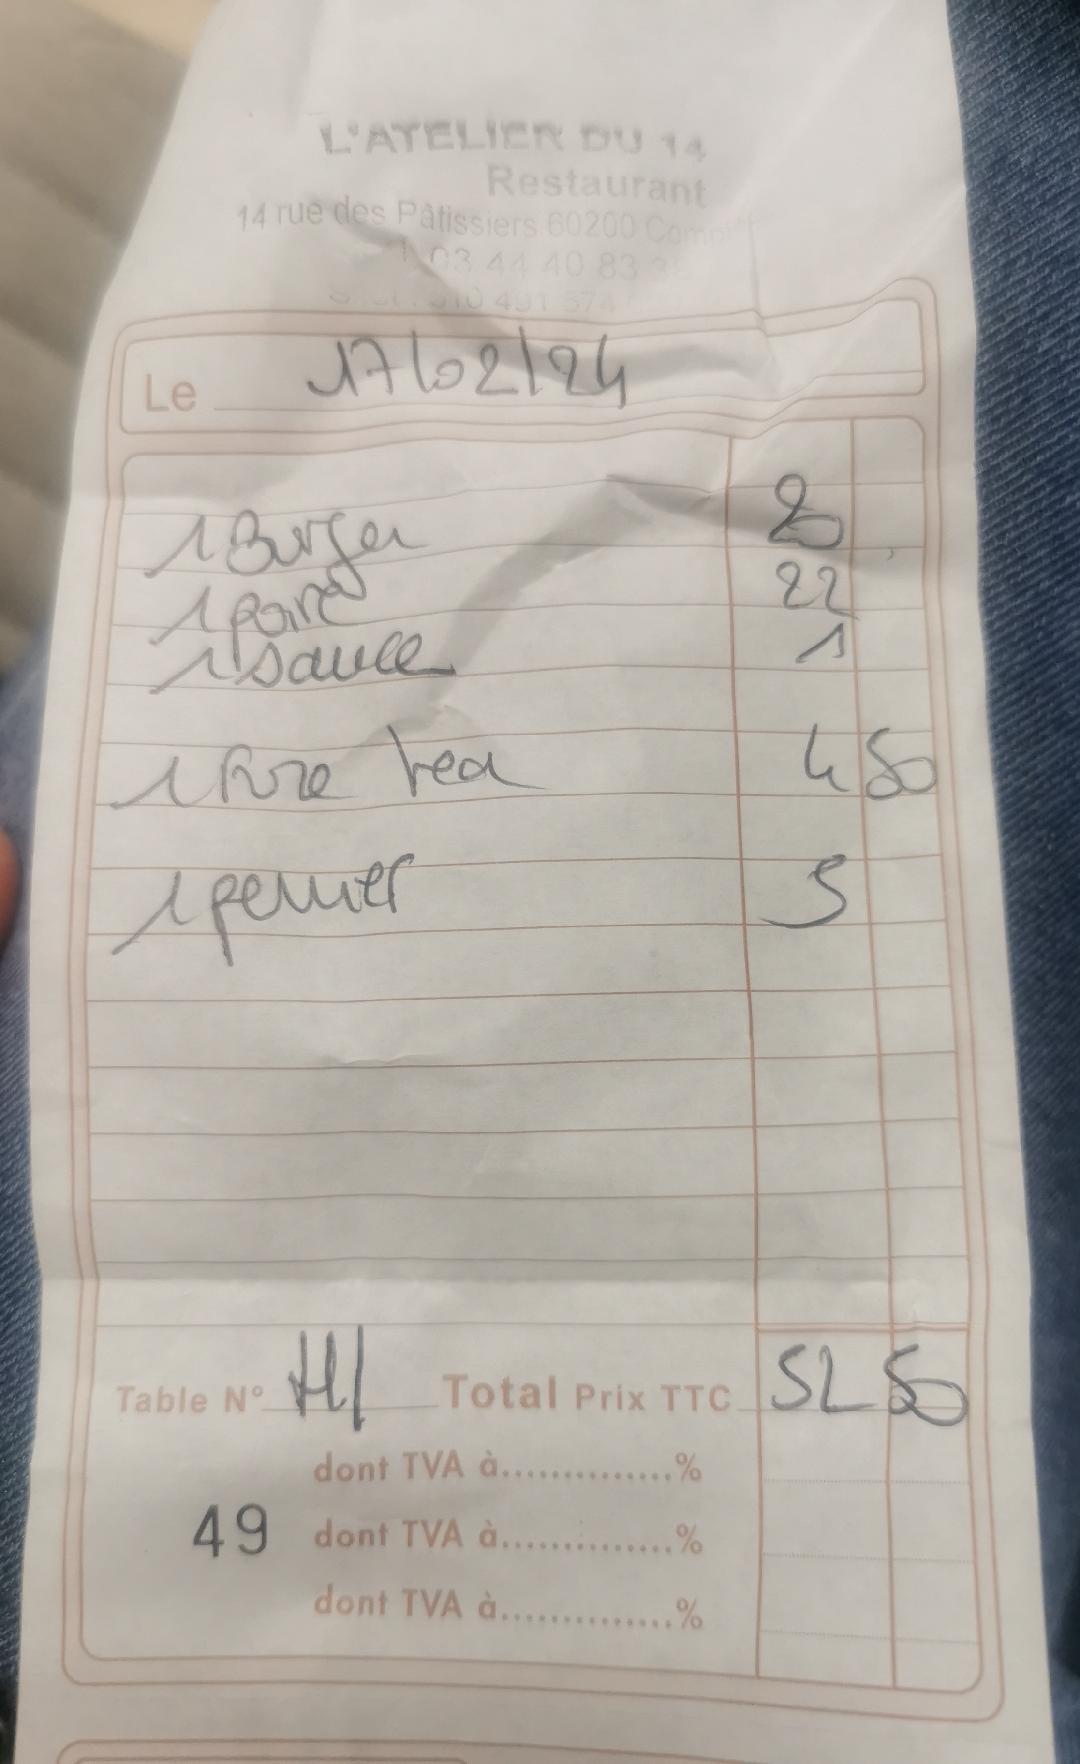 L'ATELIER DU 14
Restaurant
14 rue des Pâtissiers 60200
03 44 40 83
Le 17/02/24
1 Burger 20
1 22
1 sauce 1
1 fuze tea 4 50
1 perrier 5
Table N° H1 Total Prix TTC 52 50
dont TVA à..............%
49 dont TVA à..............%
dont TVA à..............%